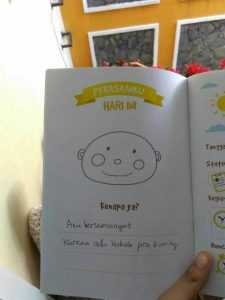 PERASAANKU
HARI INI
Kenapa ya?
Aku bersemangat
karena ada kakak pra kuning
Tangga
Status
Kegia
Renc